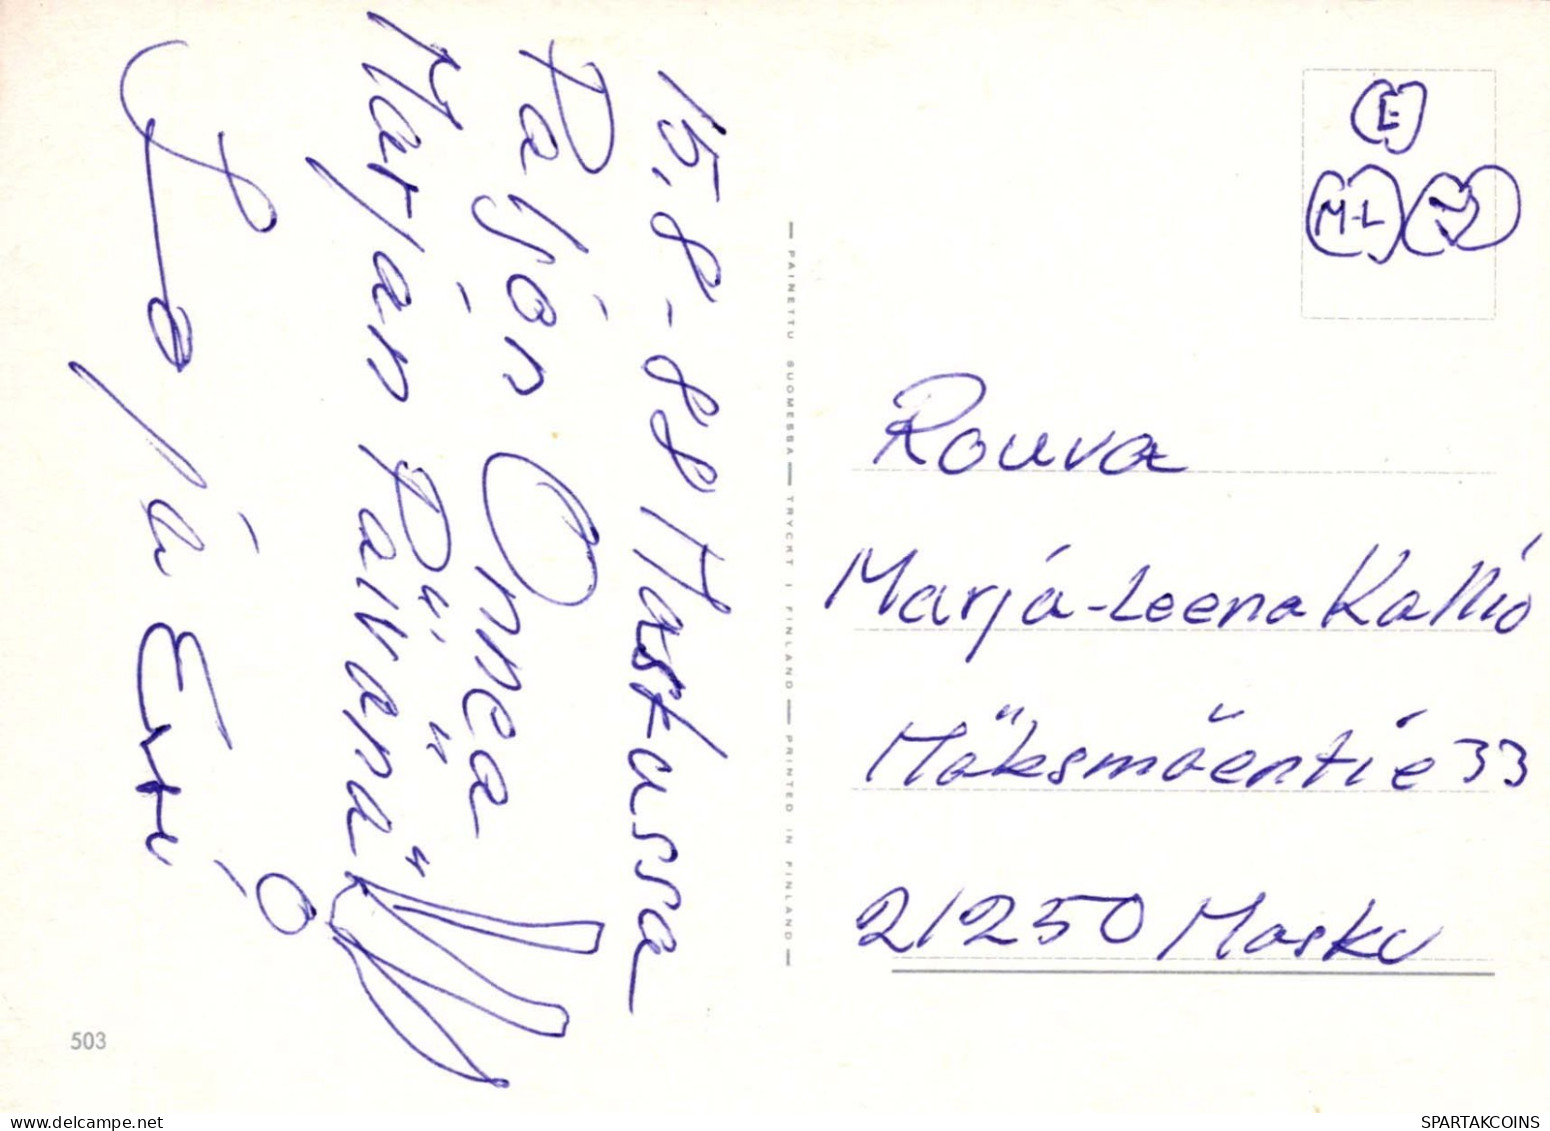 15.8-88 Maskussa
Paljon Onnea
Marjan Päivänä
ja Erki
E
M-L
Rouva
Marja-Leena Kallio
Mäksmäentie 33
21250 Masku
PAINETTU SUOMESSA — TRYCKT I FINLAND — PRINTED IN FINLAND
503
SPARTAKCOINS